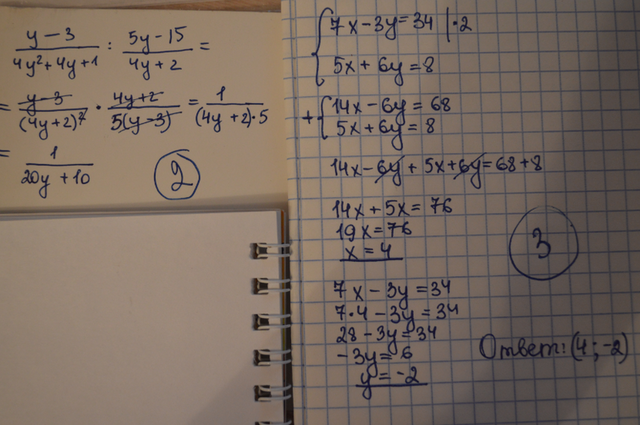 (y-3)/(4y²+4y+1) : (5y-15)/(4y+2) =
= (y-3)/(4y+2)² · (4y+2)/(5(y-3)) = 1/((4y+2)·5)
= 1/(20y+10)
2
{ 7x-3y=34 |·2
5x+6y=8
+{ 14x-6y=68
5x+6y=8
14x-6y+5x+6y=68+8
14x+5x=76
19x=76
x=4
3
7x-3y=34
7·4-3y=34
28-3y=34
-3y=6
y=-2
Ответ: (4; -2)